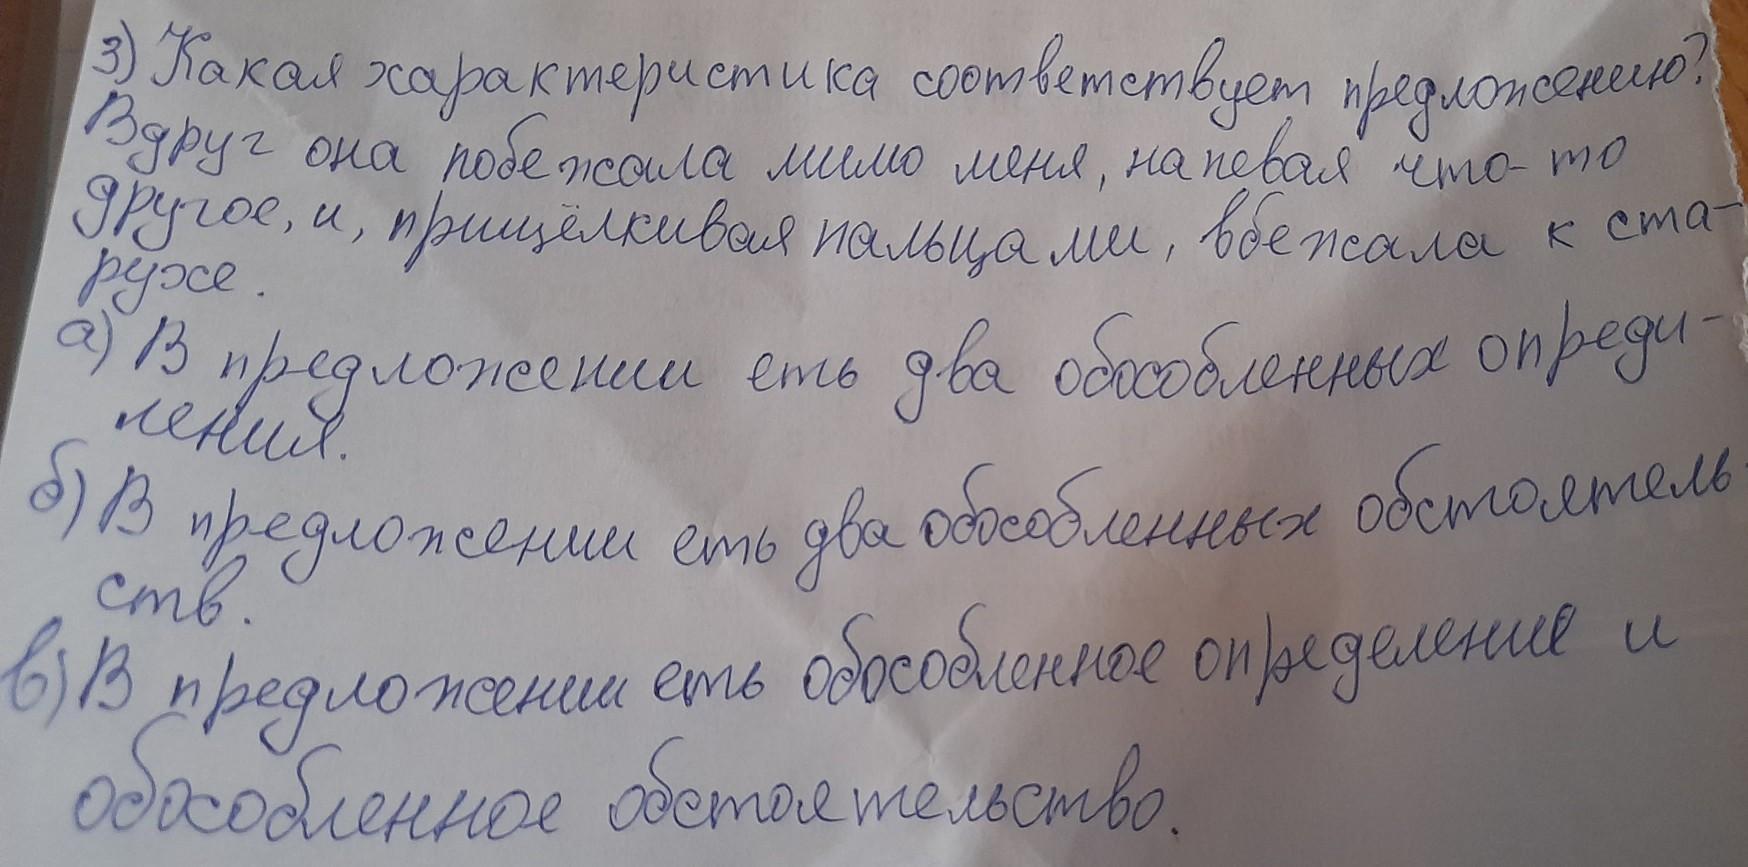 3) Какая характеристика соответствует предложению?
Вдруг она побежала мимо меня, напевая что-то
другое, и, прищёлкивая пальцами, вбежала к ста-
рухе.
а) В предложении еть два обособленных опреди-
ления.
б) В предложении еть два обособленных обстоятель
ств.
в) В предложении еть обособленное определение и
обособленное обстоятельство.